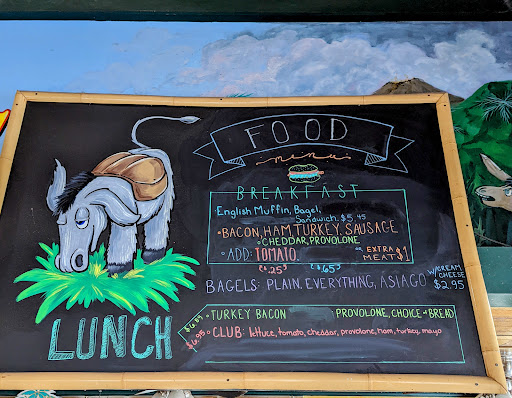 FOOD
menu
BREAKFAST
English Muffin, Bagel,
Sandwich. $5.45
•BACON, HAM, TURKEY, SAUSAGE
•CHEDDAR, PROVOLONE
•ADD: TOMATO. or EXTRA $1
MEAT $1
BAGELS: PLAIN, EVERYTHING, ASIAGO W/CREAM
CHEESE
$2.95
LUNCH
• TURKEY BACON PROVOLONE, CHOICE of BREAD
$6.95 • CLUB: lettuce, tomato, cheddar, provolone, ham, turkey, mayo